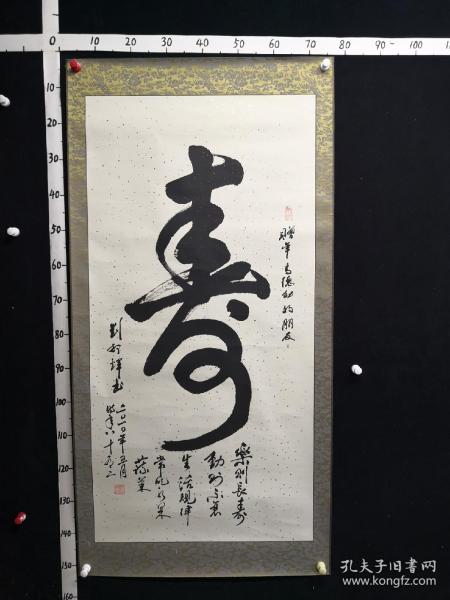 0 10 20 30 40 50 60 70 80 90 100
10
20
30
40
50
60
70
80
90
100
110
120
130
140
150
160
壽
赠年高德劭的朋友
樂則長壽
動則不衰
生活規律
常吃水果
蔬菜
二〇一〇年五月
時年八十
孔夫子旧书网
www.kongfz.com